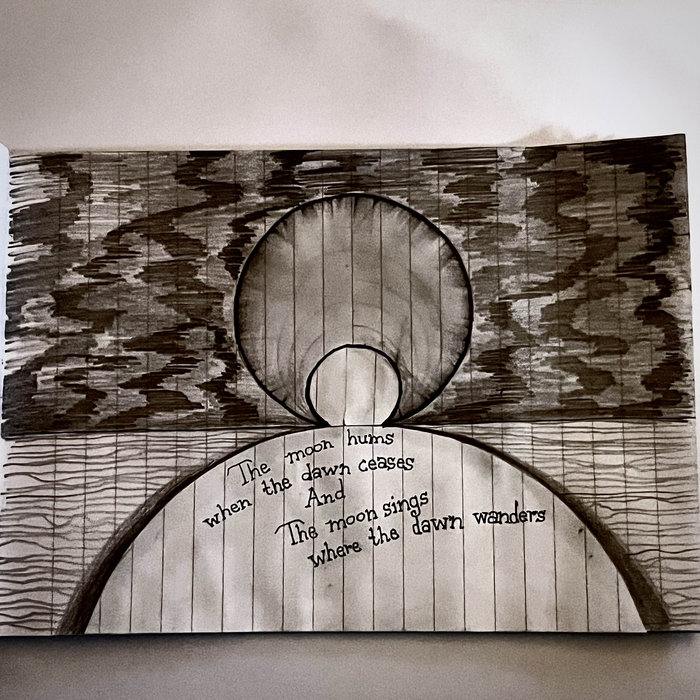 The moon hums
when the dawn ceases
And
The moon sings
where the dawn wanders